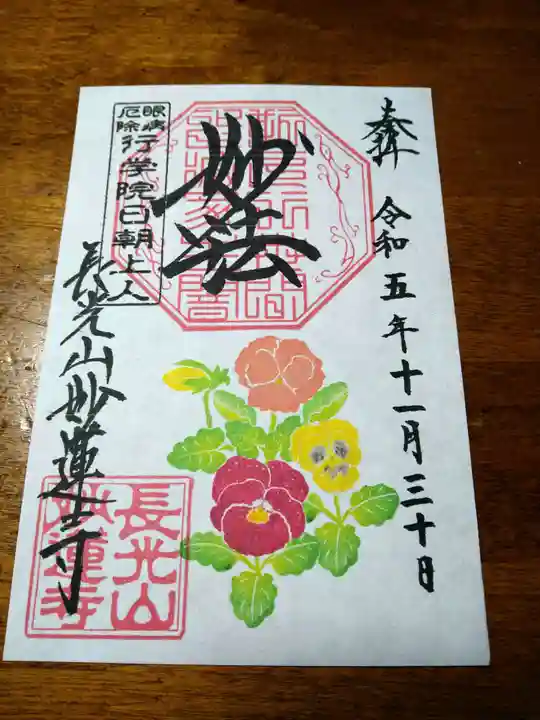 奉拝
令和五年十一月三十日
妙法
眼病
厄除
行学院日朝上人
長光山妙蓮寺
長光山
妙蓮寺